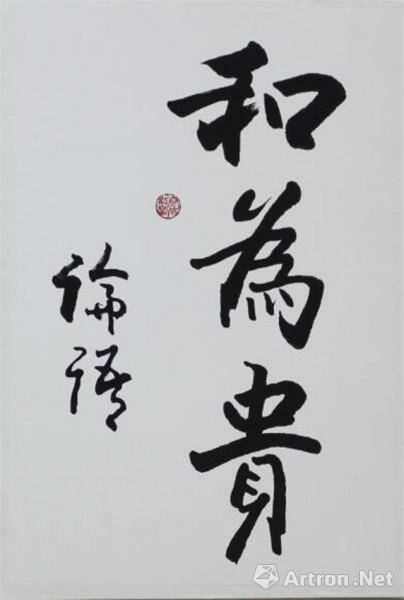 和為貴
論語
Artron.Net